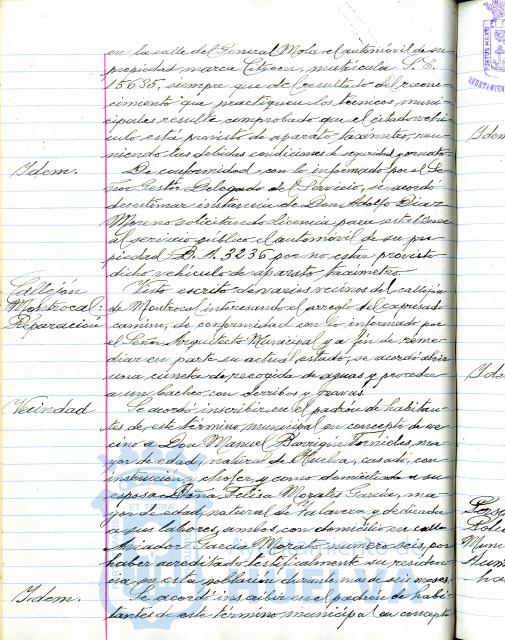 en la calle del General Mola el automóvil de su
propiedad marca Citroen, matrícula S.E.
15685, siempre que del resultado del recono-
cimiento que practiquen los técnicos muni-
cipales resulte comprobado que el citado vehí-
culo está provisto de aparato taxímetro, reu-
niendo las debidas condiciones de seguridad y ornato.
Idem.
De conformidad con lo informado por el Se-
ñor Gestor Delegado del Servicio, se acordó
desestimar instancia de Don Adolfo Díaz
Moreno solicitando licencia para establecer
al servicio público el automóvil de su pro-
piedad B.A. 3236 por no estar provisto
dicho vehículo de aparato taxímetro.
Callejón
Montrocal:
Reparación
Visto escrito de varios vecinos del callejón
de Montrocal interesando el arreglo del expresado
camino, de conformidad con lo informado por
el Señor Arquitecto Municipal y a fin de reme-
diar en parte su actual estado, se acordó abrir
una cuneta de recogida de aguas y proceder
a un bacheo con derribos y gravas.
Vecindad
Se acordó inscribir en el padrón de habitan-
tes de este término municipal en concepto de ve-
cino a Don Manuel Barrigón Fornieles, ma-
yor de edad, natural de Huelva, casado, con
instrucción y chofer, y como domiciliada a su
esposa Doña Felisa Morales García, ma-
yor de edad, natural de Talavera y dedicada
a sus labores, ambos con domicilio en calle
Aviador García Morato numero seis, por
haber acreditado testificalmente su residen-
cia en esta población durante mas de seis meses.
Idem.
Se acordó inscribir en el padrón de habi-
tantes de este término municipal en concepto
Ayuntamiento de
HUELVA